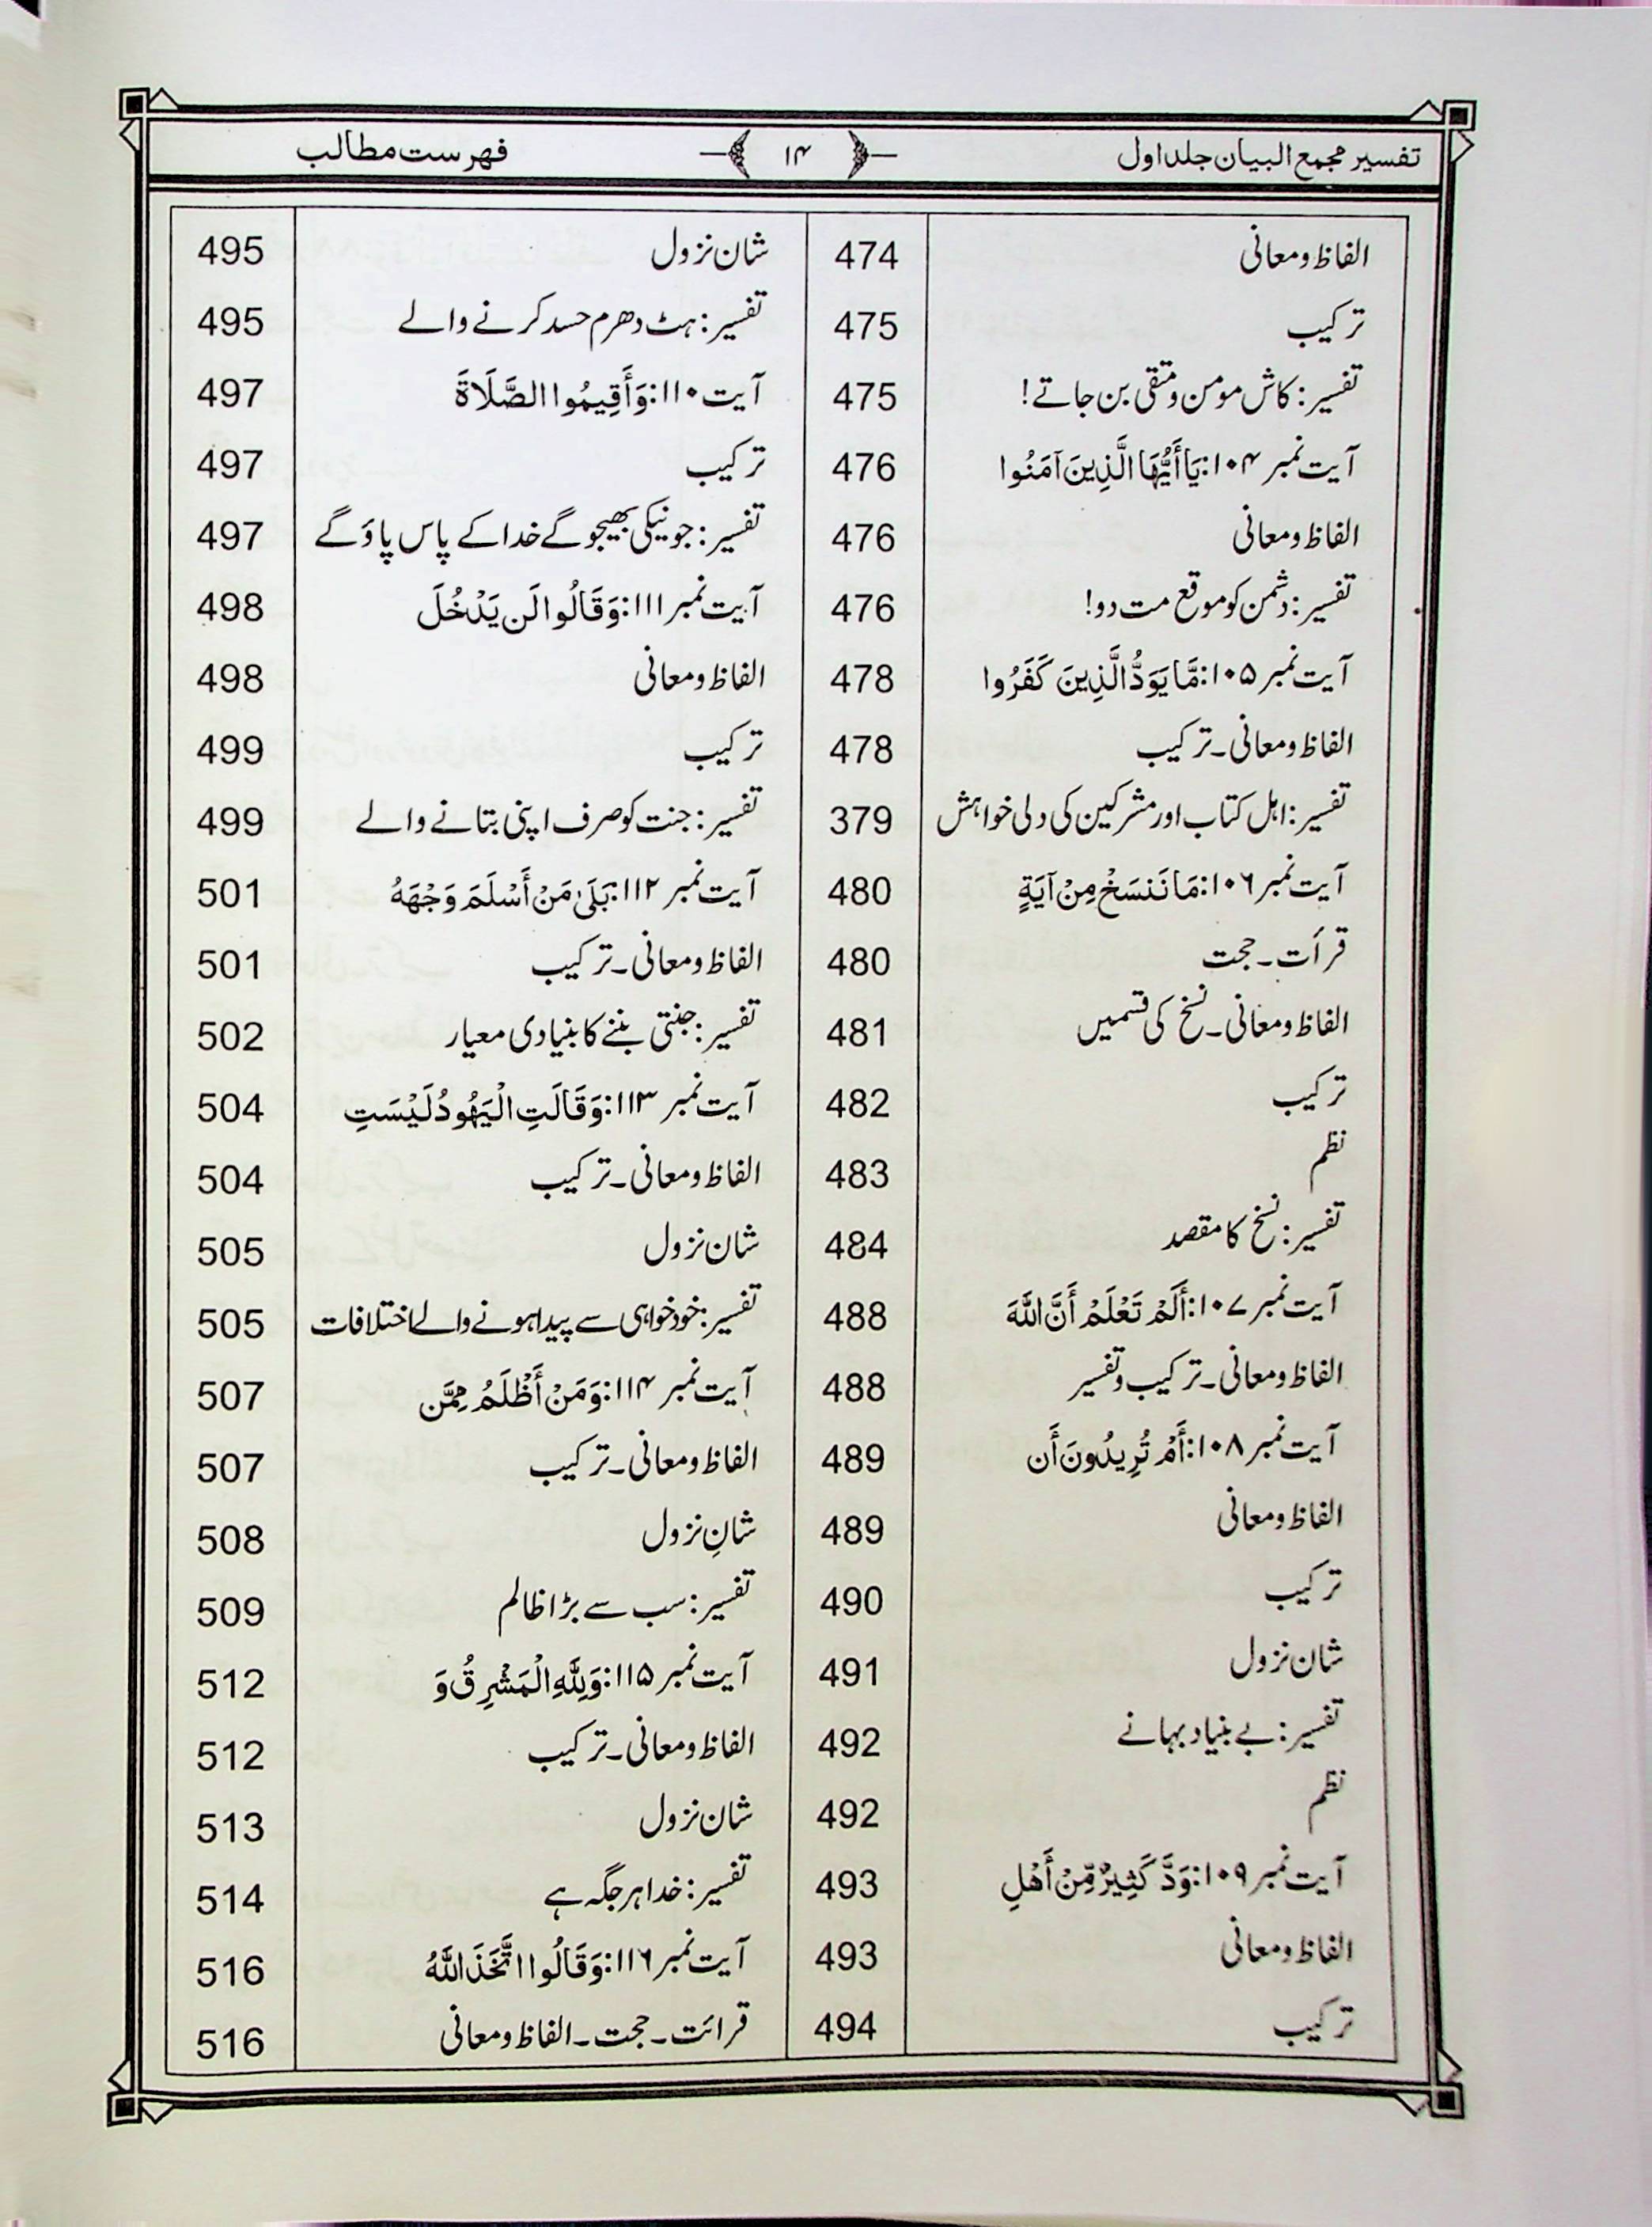 تفسیر مجمع البیان جلد اول ۱۴ فہرست مطالب
الفاظ و معانی 474
ترکیب 475
تفسیر: کاش مومن و متقی بن جاتے! 475
آیت نمبر ۱۰۴: يَا أَيُّهَا الَّذِينَ آمَنُوا 476
الفاظ و معانی 476
تفسیر: دشمن کو موقع مت دو! 476
آیت نمبر ۱۰۵: مَّا يَوَدُّ الَّذِينَ كَفَرُوا 478
الفاظ و معانی۔ ترکیب 478
تفسیر: اہل کتاب اور مشرکین کی دلی خواہش 379
آیت نمبر ۱۰۶: مَا نَنسَخْ مِنْ آيَةٍ 480
قرأت۔ حجت 480
الفاظ و معانی۔ نسخ کی قسمیں 481
ترکیب 482
نظم 483
تفسیر: نسخ کا مقصد 484
آیت نمبر ۱۰۷: أَلَمْ تَعْلَمْ أَنَّ اللَّهَ 488
الفاظ و معانی۔ ترکیب و تفسیر 488
آیت نمبر ۱۰۸: أَمْ تُرِيدُونَ أَن 489
الفاظ و معانی 489
ترکیب 490
شان نزول 491
تفسیر: بے بنیاد بہانے 492
نظم 492
آیت نمبر ۱۰۹: وَدَّ كَثِيرٌ مِّنْ أَهْلِ 493
الفاظ و معانی 493
ترکیب 494
شان نزول 495
تفسیر: ہٹ دھرم حسد کرنے والے 495
آیت ۱۱۰: وَأَقِيمُوا الصَّلَاةَ 497
ترکیب 497
تفسیر: جو نیکی بھیجو گے خدا کے پاس پاؤ گے 497
آیت نمبر ۱۱۱: وَقَالُوا لَن يَدْخُلَ 498
الفاظ و معانی 498
ترکیب 499
تفسیر: جنت کو صرف اپنی بتانے والے 499
آیت نمبر ۱۱۲: بَلَىٰ مَنْ أَسْلَمَ وَجْهَهُ 501
الفاظ و معانی۔ ترکیب 501
تفسیر: جنتی بننے کا بنیادی معیار 502
آیت نمبر ۱۱۳: وَقَالَتِ الْيَهُودُ لَيْسَتِ 504
الفاظ و معانی۔ ترکیب 504
شان نزول 505
تفسیر: خود خواہی سے پیدا ہونے والے اختلافات 505
آیت نمبر ۱۱۴: وَمَنْ أَظْلَمُ مِمَّن 507
الفاظ و معانی۔ ترکیب 507
شانِ نزول 508
تفسیر: سب سے بڑا ظالم 509
آیت نمبر ۱۱۵: وَلِلَّهِ الْمَشْرِقُ وَ 512
الفاظ و معانی۔ ترکیب 512
شان نزول 513
تفسیر: خدا ہر جگہ ہے 514
آیت نمبر ۱۱۶: وَقَالُوا اتَّخَذَ اللَّهُ 516
قرائت۔ حجت۔ الفاظ و معانی 516